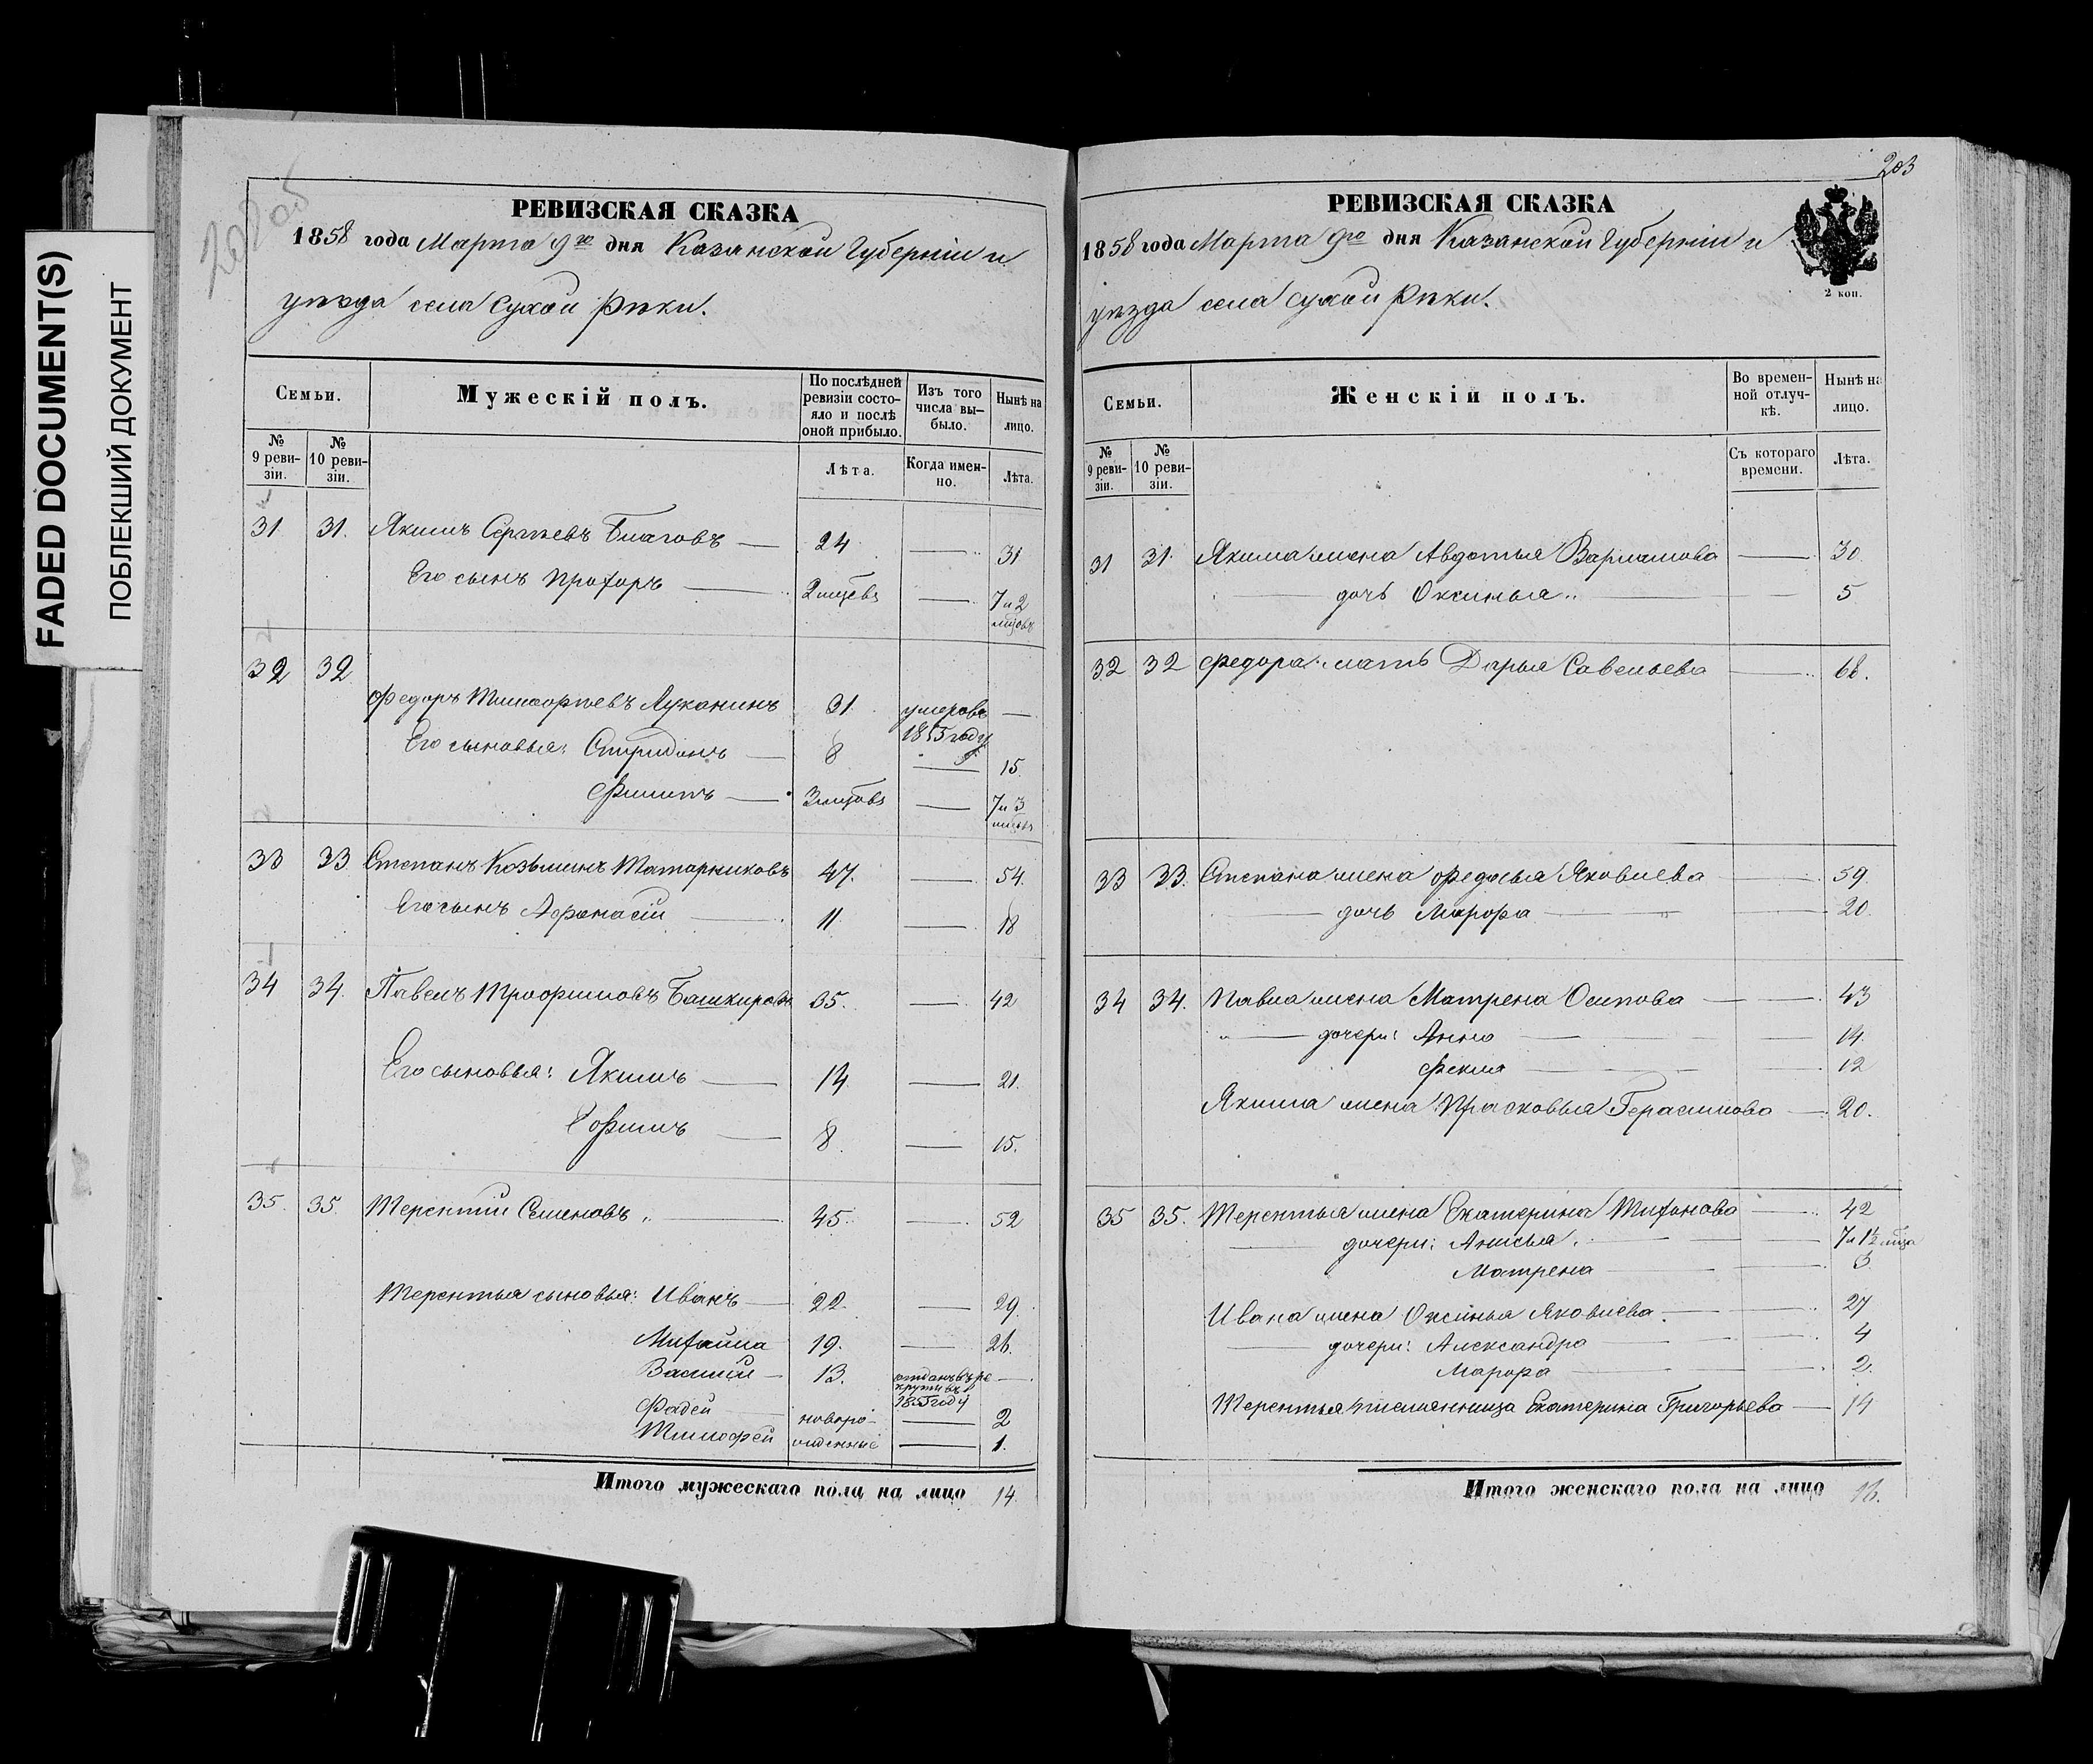 FADED DOCUMENT(S)
ПОБЛЕКШИЙ ДОКУМЕНТ
РЕВИЗСКАЯ СКАЗКА
1858 года Марта 9го дня Казанской Губерніи и
уѣзда села Сухой Рѣки.
Семьи.
Мужескій полъ.
По послѣдней ревизіи состояло и послѣ оной прибыло.
Изъ того числа выбыло.
Нынѣ на лицо.
№ 9 ревизіи.
№ 10 ревизіи.
Лѣта.
Когда именно.
Лѣта.
31 31. Якимъ Сергѣевъ — 24 — 31
Его сынъ Прохоръ — 2 мѣсцевъ — 7 и 2 мѣсцовъ
32 32
Федоръ Тимофѣевъ Луканинъ 31. умеръ въ 1855 году —
Его сыновья: Спиридонъ — 8 — 15.
Филипъ — 3 мѣсцовъ — 7 и 3 мѣсцовъ
33 33 Степанъ Козьминъ Татарниковъ 47. — 54.
Его сынъ Афонасій — 11. — 18
34 34. Павелъ Трофимовъ Башкировъ 35. — 42
Его сыновья: Якимъ — 14 — 21.
Ефимъ — 8. — 15.
35. 35. Терентій Семеновъ — 45. — 52
Терентья сыновья: Иванъ — 22. — 29.
Михайла 19. — 26.
Василій — 13. отданъ въ рекруты въ 1855 году —
Фадей новоро- — 2
Тимофей жденные — 1.
Итого мужескаго пола на лицо 14
203
РЕВИЗСКАЯ СКАЗКА
1858 года Марта 9го дня Казанской Губерніи и
уѣзда села Сухой Рѣки.
2 коп.
Семьи.
Женскій полъ.
Во временной отлучкѣ.
Нынѣ на лицо.
№ 9 ревизіи.
№ 10 ревизіи.
Съ котораго времени.
Лѣта.
31 31. Якима жена Авдотья Варламова — 30
дочь Оксинья — 5
32 32 Федора мать Дарья Савельева — 68.
33 33. Степана жена Федосья Яковлева — 59
— дочь Марфа — 20.
34 34. Павла жена Матрена Осипова — 43
— дочери: Анна — 14.
Фекла — 12
Якима жена Прасковья Герасимова — 20.
35 35. Терентья жена Екатерина Тихонова — 42
— дочери: Анисья — 7 и 1½ мѣсца
Матрена — 3
Ивана жена Оксинья Яковлева — 27
— дочери: Александра — 4
Марфа — 2.
Терентья племянница Екатерина Григорьева — 14
Итого женскаго пола на лицо 16.